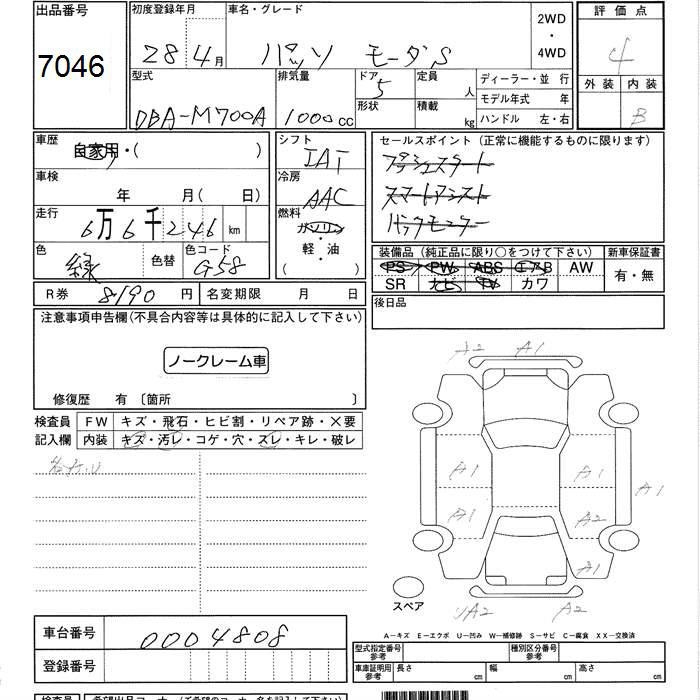 出品番号 初度登録年月 車名・グレード 2WD ・ 4WD 評価点
7046 28 4月 パッソ モーダS 4
型式 排気量 ドア 定員 ディーラー・並行 外装 内装
DBA-M700A 1000cc 5 人 モデル年式 年 B
形状 積載 kg ハンドル 左・右
車歴 シフト セールスポイント (正常に機能するものに限ります)
自家用・( ) IAT プッシュスタート
車検 冷房 スマートアシスト
年 月(日) AAC バックモニター
走行 燃料
6万6千246km ガソリン・軽・油 ( )
装備品 (純正品に限り○をつけて下さい) 新車保証書
色 緑 色替 色コード G58 PS PW ABS エアB AW 有・無
SR ナビ TV カワ
R券 8190円 名変期限 月 日 後日品
注意事項申告欄(不具合内容等は具体的に記入して下さい)
ノークレーム車
修復歴 有 〔箇所 〕
A2 A1
検査員 FW キズ・飛石・ヒビ割・リペア跡・×要
記入欄 内装 キズ・汚レ・コゲ・穴・スレ・キレ・破レ
A1 A1 A1
A1 A2
A1
スペア A2 A2
A-キズ E-エクボ U-凹み W-補修跡 S-サビ C-腐食 XX-交換済
車台番号 0004808
型式指定番号 参考 種別区分番号 参考
登録番号 車庫証明用 参考 長さ cm 幅 cm 高さ cm